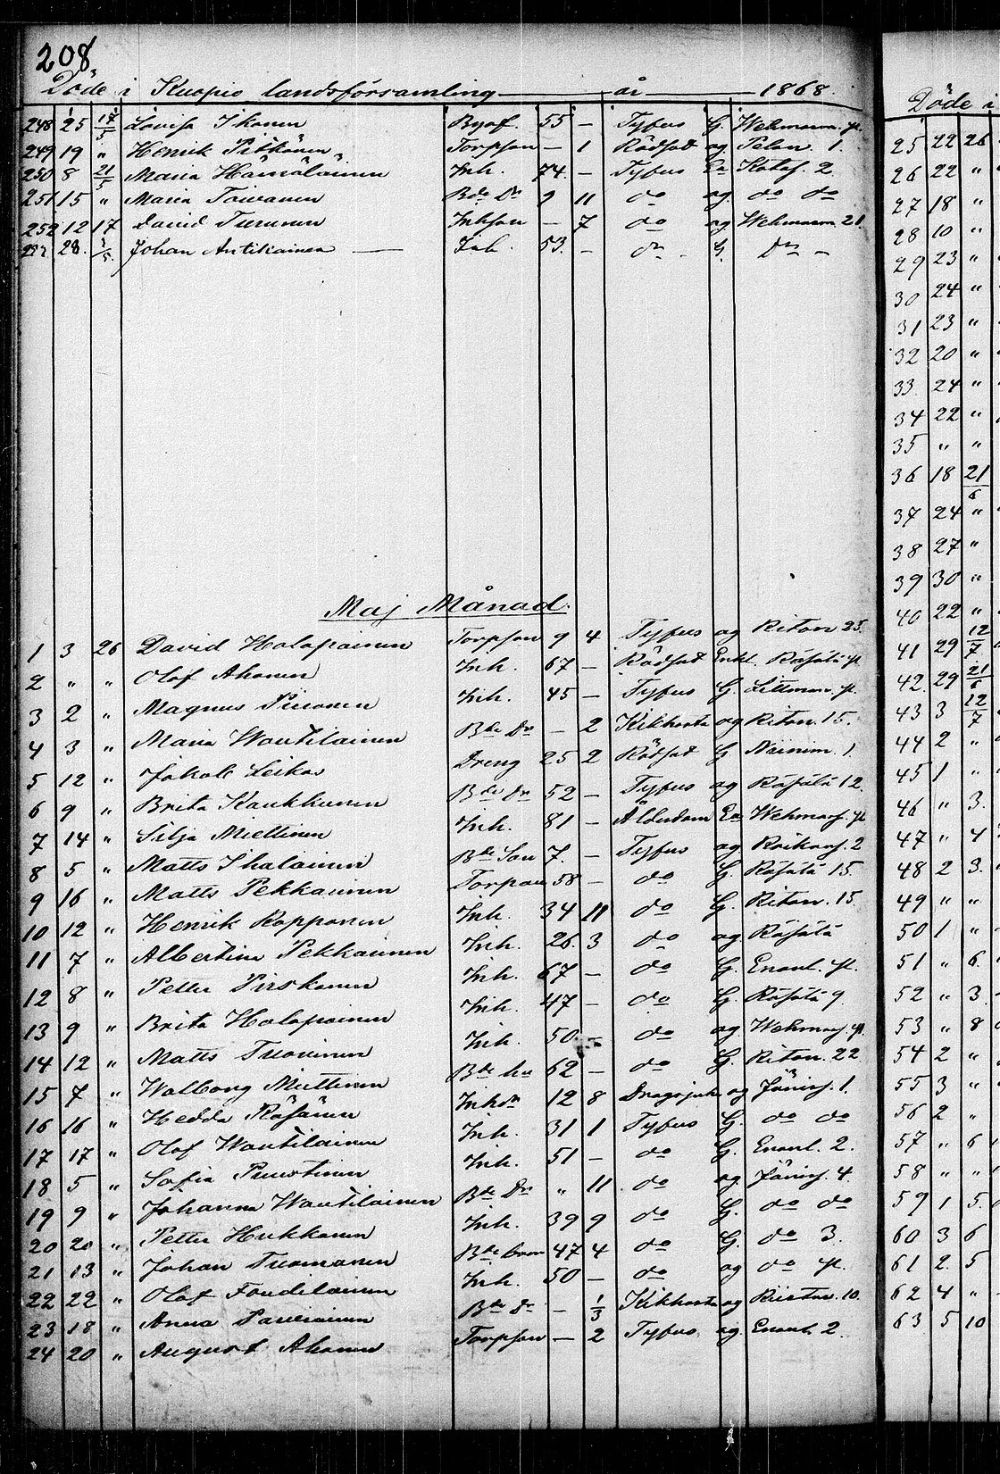 208.
Döde i Kuopio landsförsamling år 1868
248 25 17/5 Lovisa Ikonen 55 — Typus G. Wehmasm.
249 19 " Henrik Pitkänen Torpson — 1 Rödsot og Palon. 1.
250 8 21/5 Maria Hämäläinen Inh. 74 — Typus En Kotas. 2.
251 15 " Maria Toivanen Bde Dr 9 11 do og do do
252 12 17 David Turunen Inhson — 7 do og Wehmasm. 21
28. Johan Antikainen — Inh. 53. — do G. do —
Maj Månad.
1 3 26 David Holopainen Torpson 9 4 Typus og Riton 23.
2 " " Olof Ahonen Inh. 67 — Rödsot Enkl. Räsälä
3 2 " Magnus Piironen Inh. 45 — Typus G. Littman.
4 3 " Maria Woutilainen Bde Dr — 2 Kikhosta og Riton. 15.
5 12 " Jakob Leikas Dreng 25 2 Rödsot G Näinim. 1.
6 9 " Brita Kaukkunen Bde Dr 52 — Typus og Räsälä 12.
7 14 " Silja Miettinen Inh. 81 — Ålderdom En Wehmas.
8 5 " Matts Ihalainen Bde Son 7. — Typus og 2
9 16 " Matts Pekkarinen Torpare 58 — do G. Räsälä 15.
10 12 " Henrik Kopponen Inh. 34 11 do G. Riton. 15
11 7 " Albertina Pekkarinen Inh. 26. 3 do og Räsälä
12 8 " Petter Pirskanen Inh. 67 — do G. Enonl.
13 9 " Brita Holopainen Inh. 47 — do G. Räsälä 9.
14 12 " Matts Tuovinen Inh. 50. — do og Wehmas.
15 7 " Walborg Miettinen Bde hu 62 — do G. Riton. 22
16 16 " Hedda Räsänen Inhdr 12 8 Dragsjuk og Jänis. 1.
17 17 " Olof Woutilainen Inh. 31 1 Typus G. do do
18 5 " Sofia Puustinen Inh. 51 — do G. Enonl. 2.
19 9 " Johanna Woutilainen Bde Dr " 11 do og Jänis. 4.
20 20 " Petter Hukkanen Inh. 39 9 do G. do do
21 13 " Johan Tuomanen Bde 47 4 do G. do 3.
22 22 " Olof Foudilainen Inh. 50 — do og do
23 18 " Anna Parviainen Bde Dr — 1/3 Kikhosta og 10.
24 20 " August Ahonen Torpson — 2 Typus og Enonl. 2.
Döde i
25 22 26
26 22 "
27 18 "
28 10 "
29 23 "
30 24 "
31 23 "
32 20 "
33 24 "
34 22 "
35 " "
36 18 21/6
37 24 "
38 27 "
39 30 "
40 22 "
41 29 12/7
42. 29 21/6
43 3 12/7
44 2 "
45 1 "
46 " 3.
47 " 4
48 2 3.
49 " "
50 1 "
51 " 6.
52 " 3.
53 " 8
54 2 "
55 3 "
56 2 "
57 " 6
58 " "
59 1 5.
60 3 6
61 2. 5
62 4 "
63 5 10